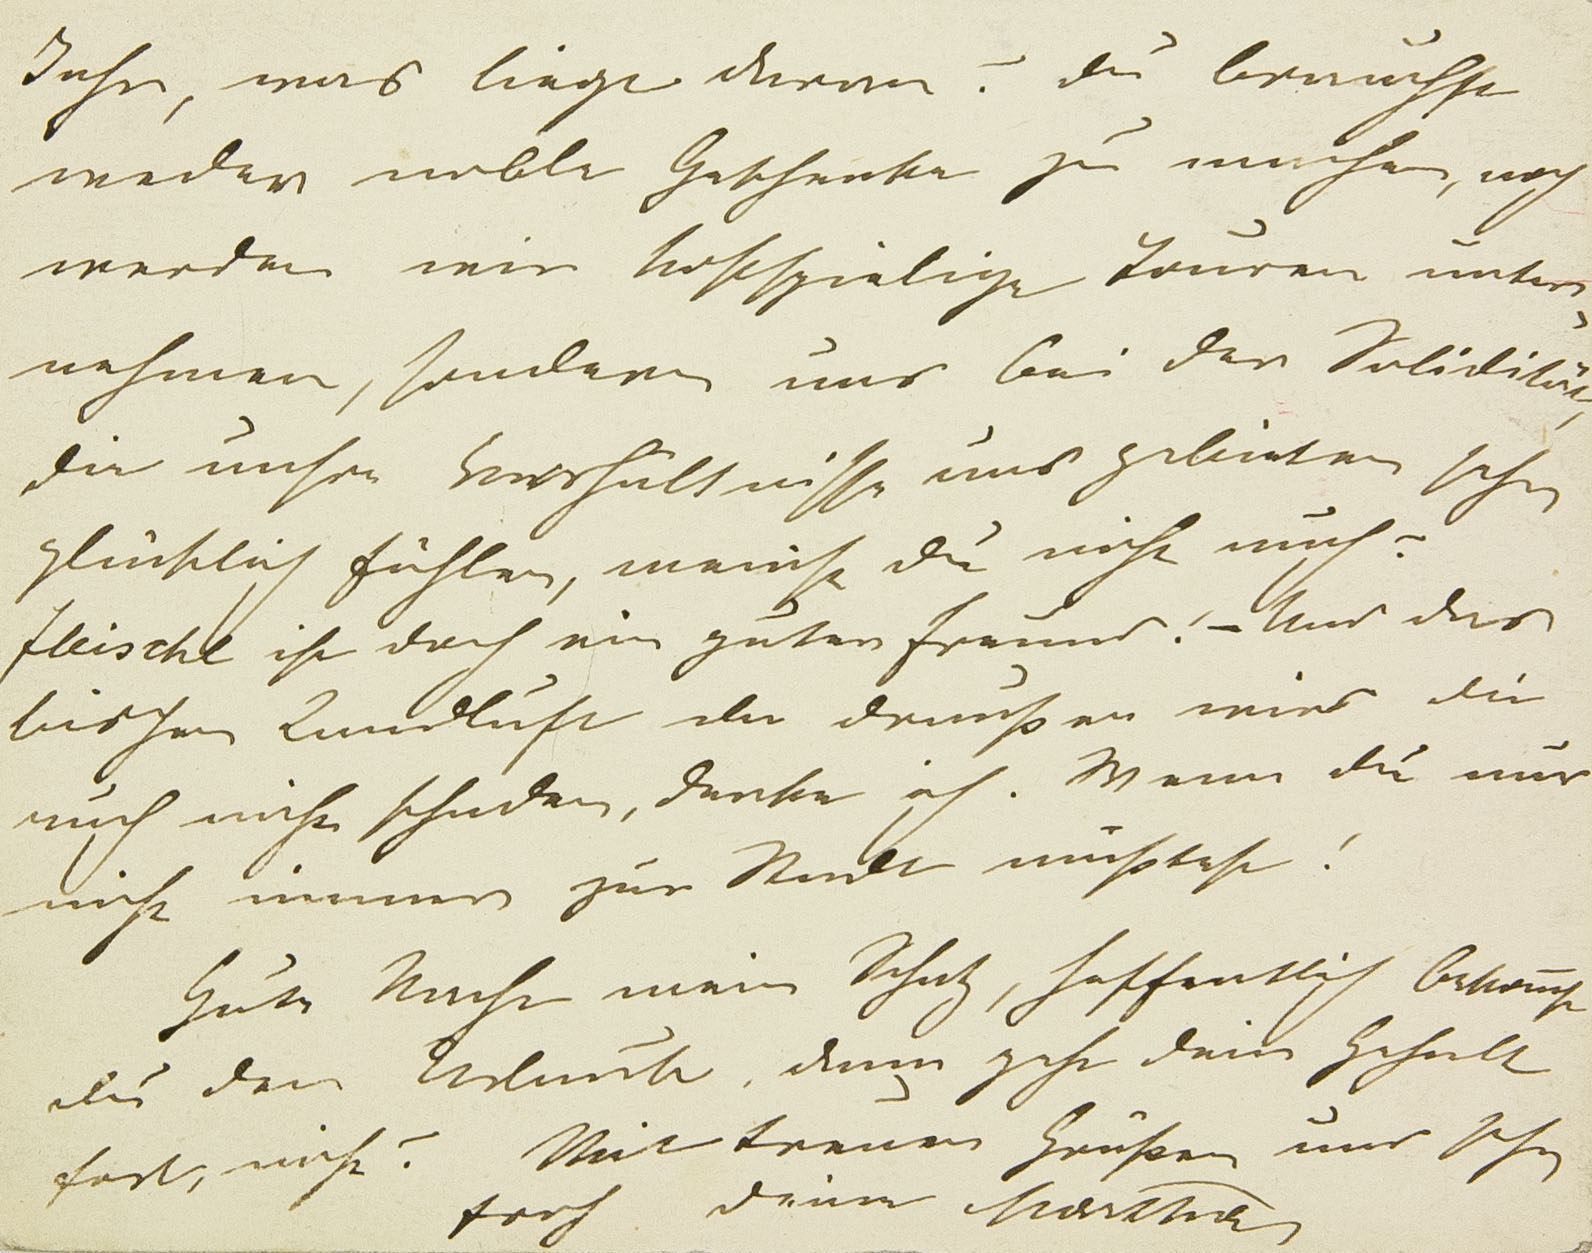 Jahr, was liegt daran? du brauchst
weder noble Geschenke zu machen, noch
werden wir kostspielige Touren unter-
nehmen, sondern uns bei der Solidität,
die unsre Verhältnisse uns gebieten sehr
glücklich fühlen, meinst du nicht auch?
Fleischl ist doch ein guter Freund! – Und das
bischen Landluft da draußen wird dir
auch nicht schaden, denke ich. Wenn du nur
nicht immer zur Stadt müßtest!
Gute Nacht mein Schatz, hoffentlich bekom̅st
du den Urlaub, dann geht dein Gehalt
fort, nicht? Mit treuen Grüßen und sehr
froh deine Martha